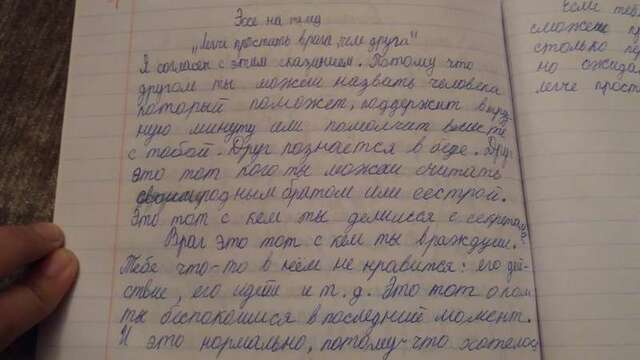 Эссе на тему
"Легче простить врага, чем друга"
Я согласен с этим сказанием. Потому что
другом ты можеш назвать человека
который поможет, поддержит в труд
ную минуту или помолчит вместе
с тобой. Друг познается в беде. Друг
это тот кого ты можеш считать
родным братом или сестрой.
Это тот с кем ты делишся с секретами.
Враг это тот с кем ты враждуеш.
Тебе что-то в нём не нравится: его дей-
ствие, его идеи и т.д. Это тот о ком
ты беспокоишся в последний момент.
И это нормально, потому-что хотелось
чем
сможеш
столько
но ожида
легче прост